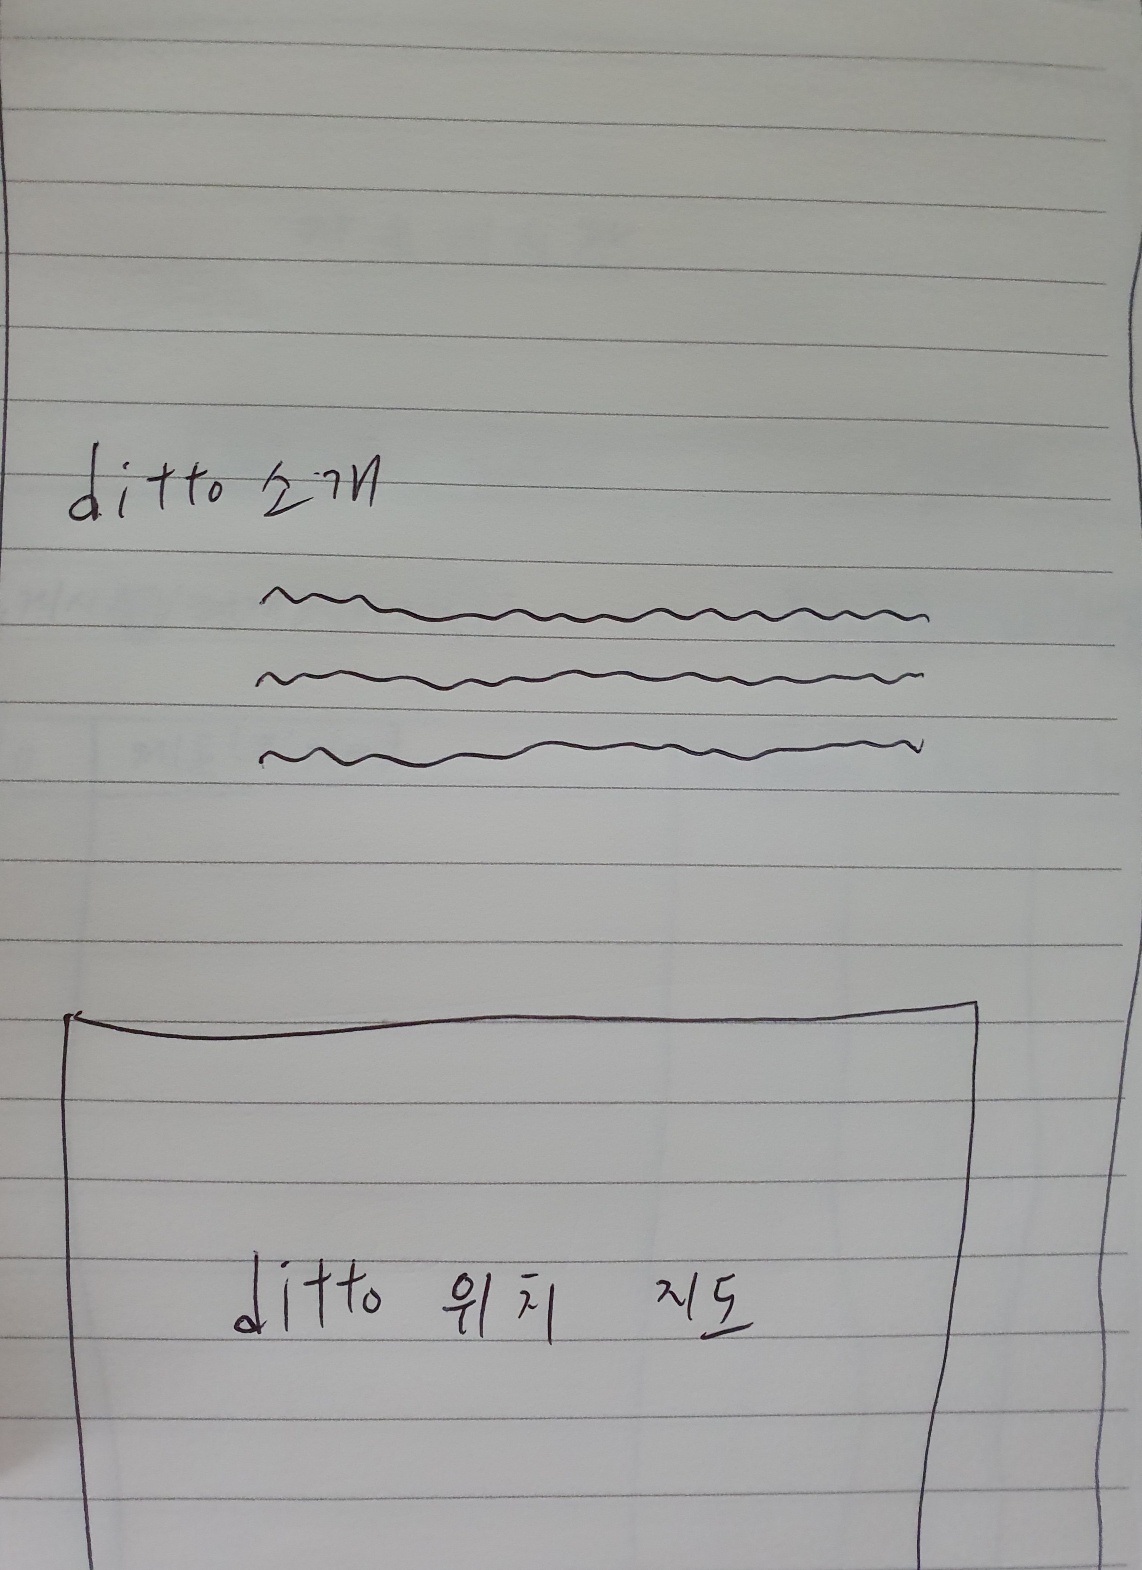 ditto 소개
ditto 위치 지도